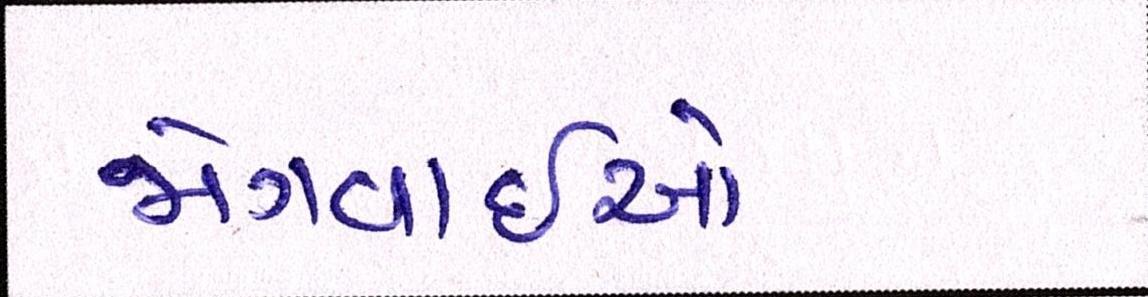 જોગવાઈઓ